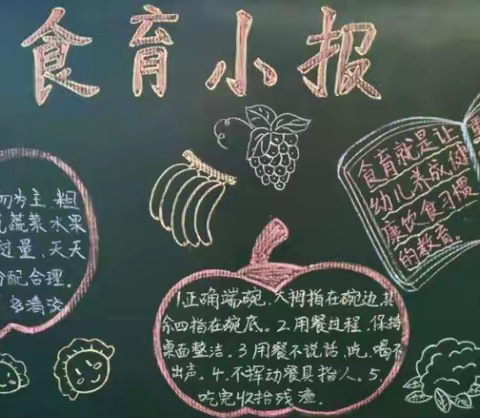 食育小报
为主，粗
蔬菜水果
过量，天天
分配合理。
多清淡
1.正确端碗，大拇指在碗边，其
余四指在碗底。2.用餐过程，保持
桌面整洁。3用餐不说话，吃，喝不
出声。4.不挥动餐具指人。5.
吃完收拾残渣。
食育就是让
幼儿养成健
康饮食习惯
的教育。